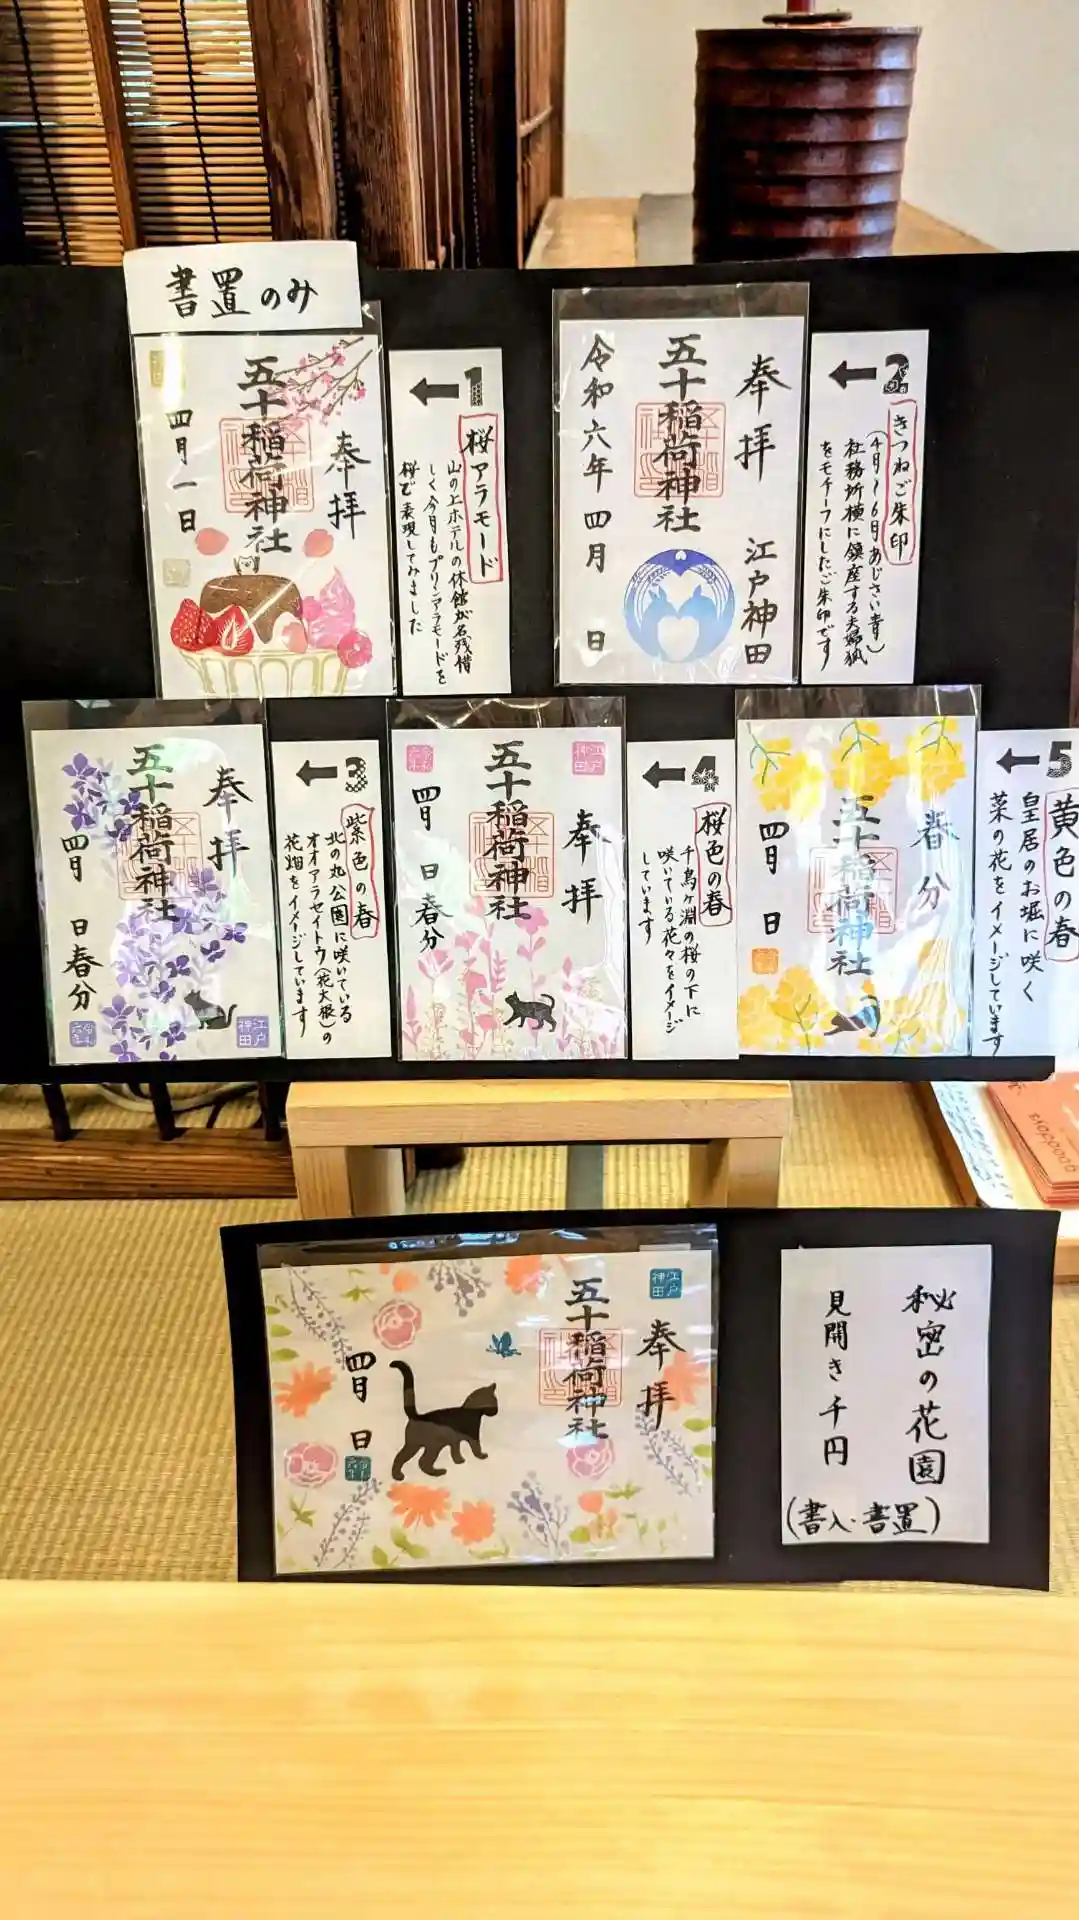 書置のみ
奉拝
五十稲荷神社
四月一日
←1
桜アラモード
山の上ホテルの休館が名残惜
しく今月もプリンアラモードを
桜で表現してみました
奉拝
江戸神田
五十稲荷神社
令和六年四月 日
←2
きつねご朱印
(4月~6月あじさい青)
社務所横に鎮座する夫婦狐
をモチーフにしたご朱印です
奉拝
五十稲荷神社
四月 日春分
江戸神田
←3
紫色の春
北の丸公園に咲いている
オオアラセイトウ(花大根)の
花畑をイメージしています
江戸神田
奉拝
五十稲荷神社
四月 日春分
←4
桜色の春
千鳥ヶ淵の桜の下に
咲いている花々をイメージ
しています
春分
五十稲荷神社
四月 日
←5
黄色の春
皇居のお堀に咲く
菜の花をイメージしています
江戸神田
奉拝
五十稲荷神社
四月 日
秘密の花園
見開き千円
(書入・書置)